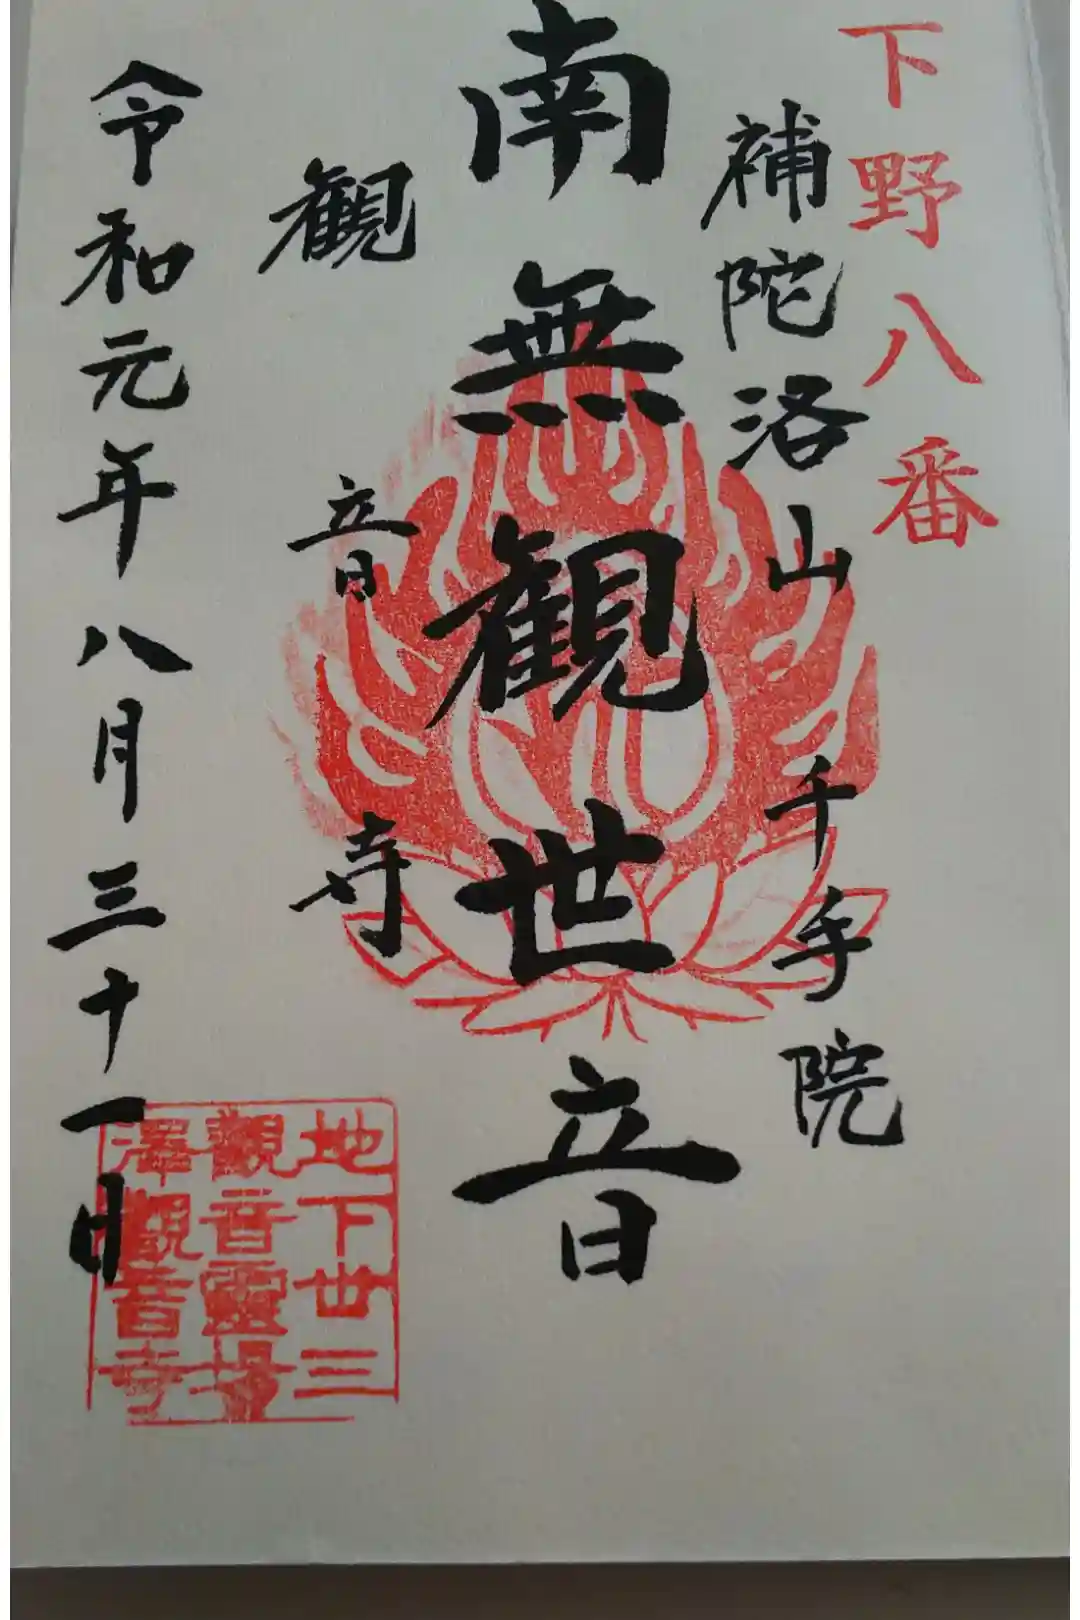 下野八番
補陀洛山千手院
南無観世音
観音寺
令和元年八月三十一日
地下丗三
觀音靈場
澤觀音寺